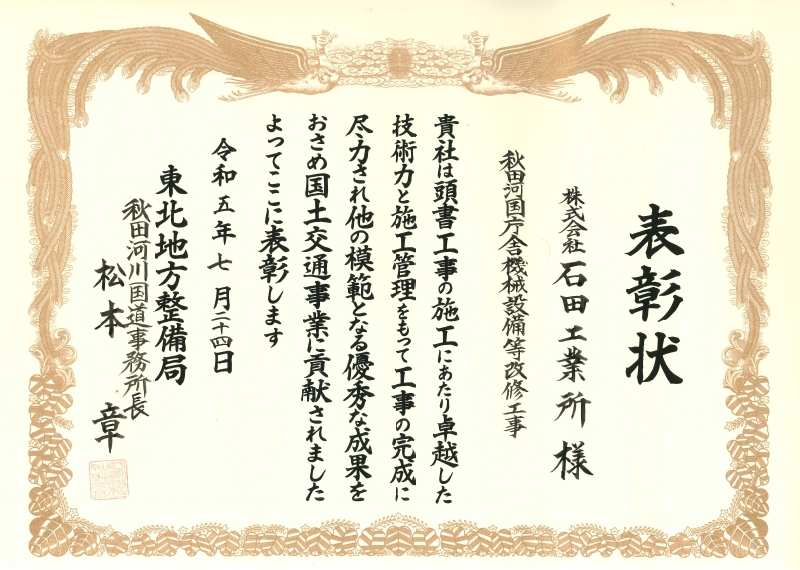 表彰状
株式会社 石田工業所 様
秋田河国庁舎機械設備等改修工事
貴社は頭書工事の施工にあたり卓越した
技術力と施工管理をもって工事の完成に
尽力され他の模範となる優秀な成果を
おさめ国土交通事業に貢献されました
よってここに表彰します
令和五年七月二十四日
東北地方整備局
秋田河川国道事務所長
松本 章